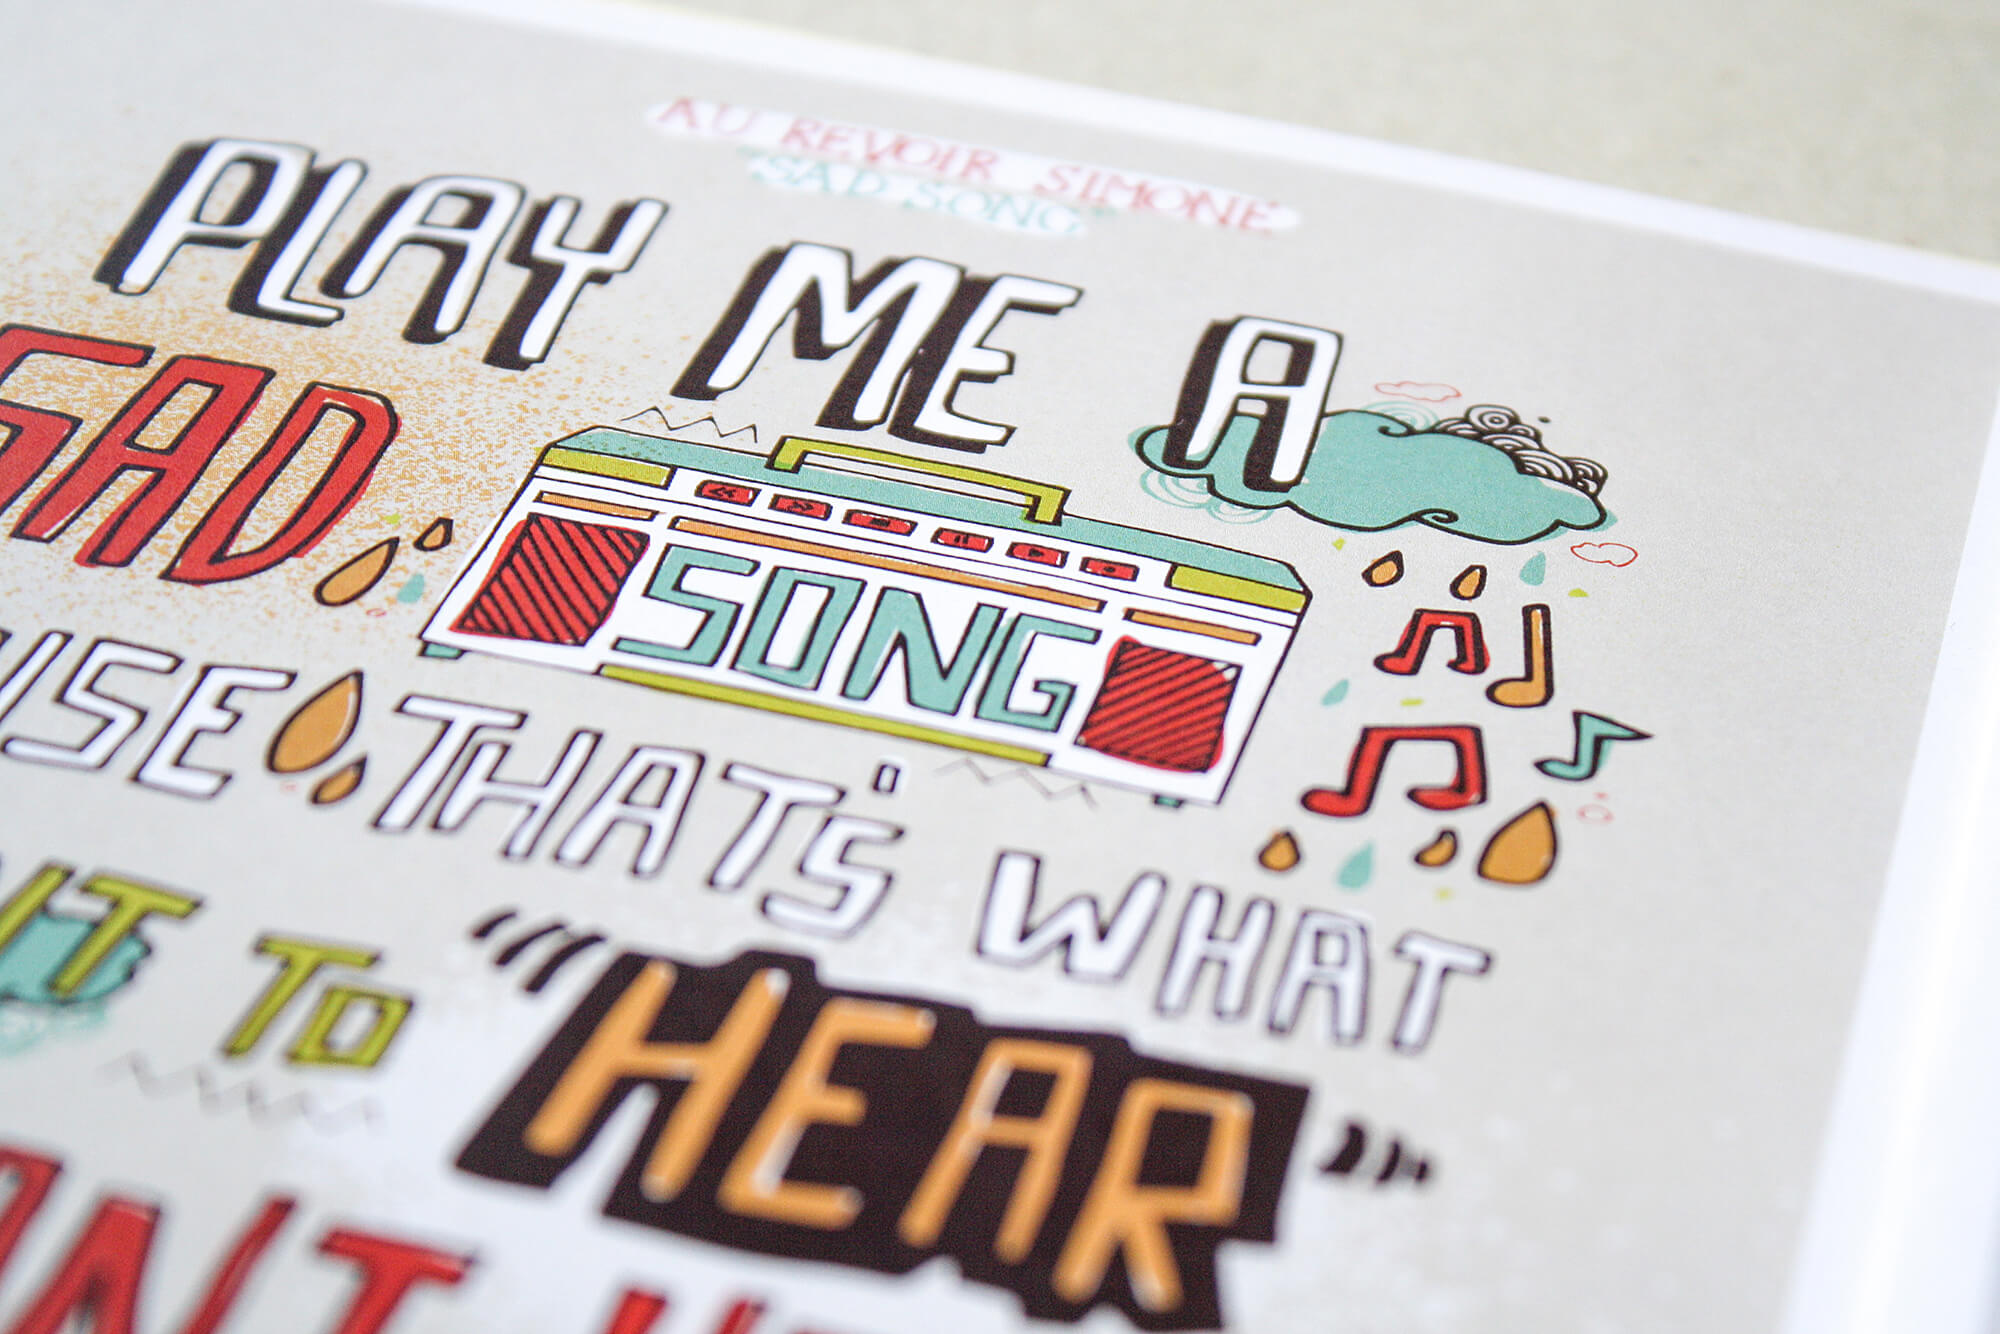 AU REVOIR SIMONE
"SAD SONG"
PLAY ME A
SAD SONG
USE THAT'S WHAT
NT TO "HEAR"
ANT